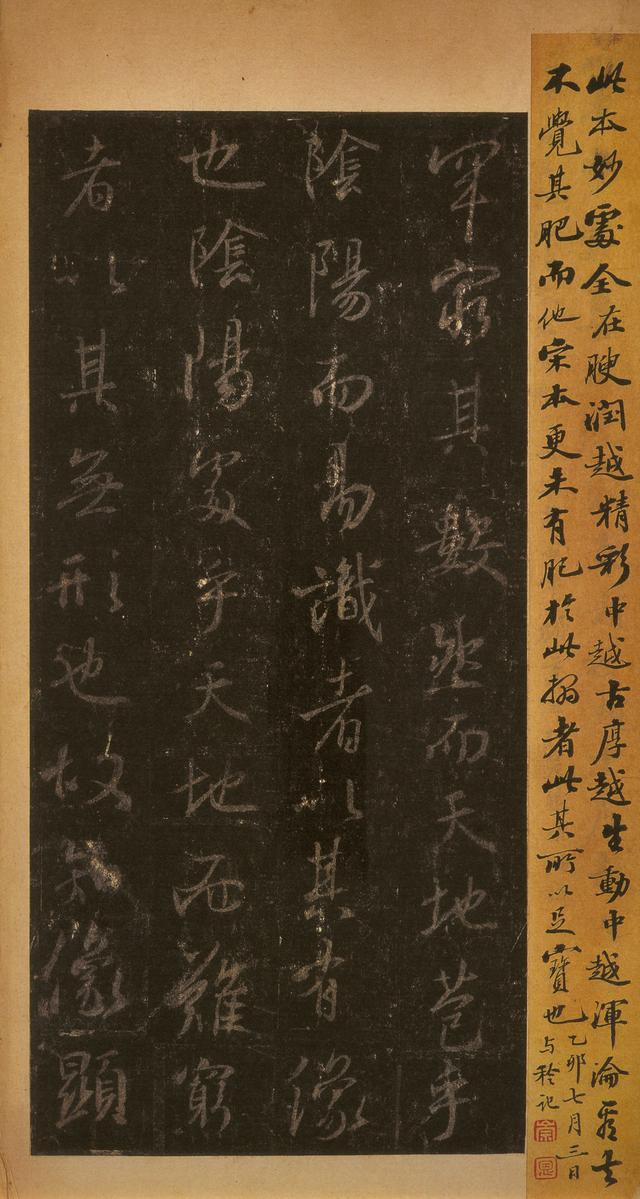 此本妙處全在腴潤越精彩中越古厚越生動中越渾淪看去
不覺其肥而他宋本更未有肥於此搨者此其所以足寶也
乙卯七月三日
与記
崇
恩
罕窮其數然而天地苞乎
陰陽而易識者以其有像
也陰陽處乎天地而難窮
者以其無形也故知像顯